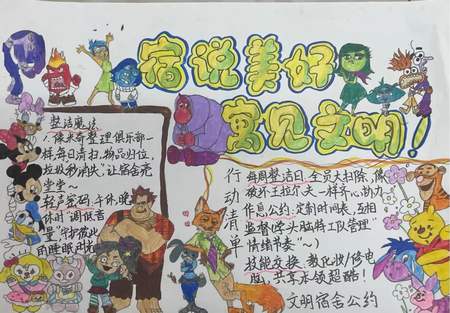 宿说美好
寓见文明！
整洁魔法
1.像米奇整理俱乐部一
样每日清扫，物品归位，
垃圾"秒消失"让宿舍亮
堂堂～
轻声密码：午休、晚
休时"调低音
量"守护彼此
的睡眠时光
行动清单
每周整洁日：全员大扫除，像
破坏王拉尔夫一样齐心协力
作息公约：定制时间表，互相
监督"像头脑特工队管理
情绪节奏"～）
技能交换：教化妆/修电
脑，共享本领超酷！
文明宿舍公约